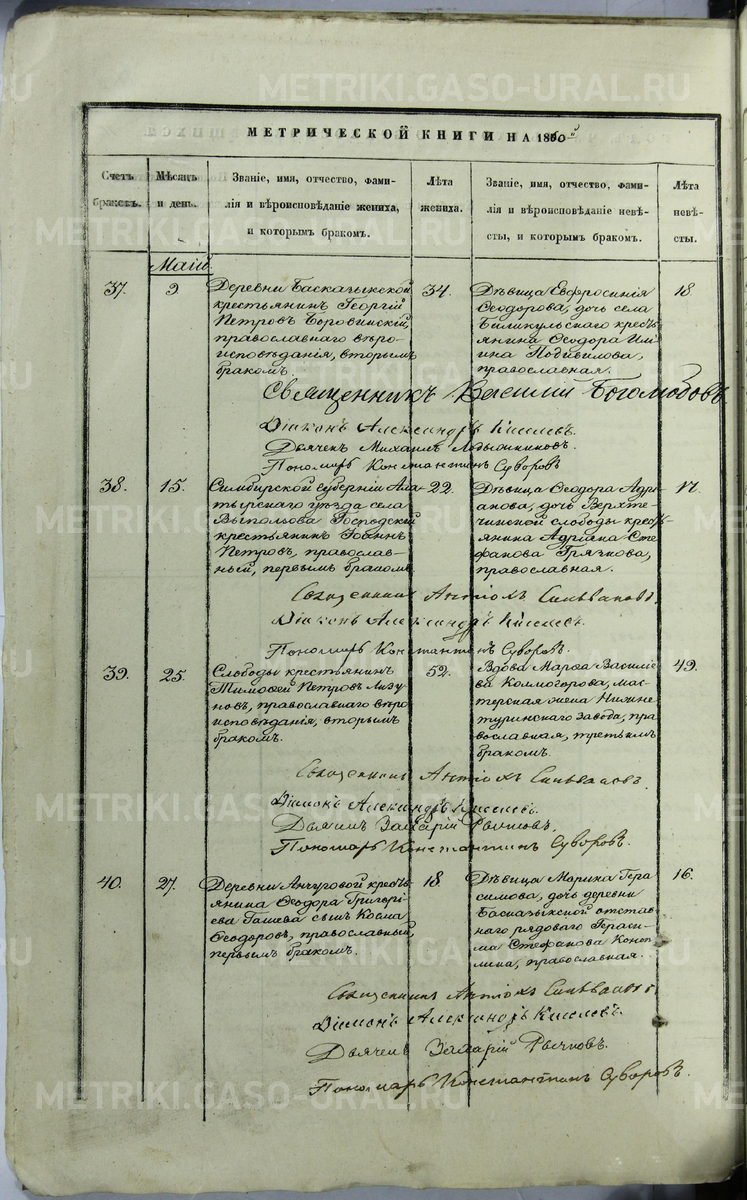 METRIKI.GASO-URAL.RU
МЕТРИЧЕСКОЙ КНИГИ НА 1860й
Счетъ
браковъ.
Мѣсяцъ
и день.
Званіе, имя, отчество, фами-
лія и вѣроисповѣданіе жениха,
и которымъ бракомъ.
Лѣта
жениха.
Званіе, имя, отчество, фами-
лія и вѣроисповѣданіе невѣ-
сты, и которымъ бракомъ.
Лѣта
невѣ-
сты.
Маій
37.
9
Деревни Басказыкской
крестьянинъ Георгій
Петровъ Боровинскій,
православнаго вѣро-
исповѣданія, вторымъ
бракомъ.
34.
Дѣвица Евфросинія
Ѳеодорова, дочь села
крестъ
янина Ѳеодора Иль
ина
православная.
18.
Священникъ Василій Боголюбовъ
Діаконъ Александръ Киселевъ.
Дьячекъ Михаилъ
Пономарь Константинъ Суворовъ
38.
15.
Симбирской губерніи Ала-
тырскаго уѣзда села
Господскій
крестьянинъ Іоаннъ
Петровъ, православ-
ный, первымъ бракомъ
22.
Дѣвица Ѳеодора Адрі-
анова, дочь Верхте-
ченской слободы крестъ-
янина Адріана Сте
фанова Грязнова,
православная.
17.
Священникъ Антіохъ Сильвановъ.
Діаконъ Александръ Киселевъ.
Пономарь Константинъ Суворовъ.
39.
25.
Слободы крестьянинъ
Тимоѳей Петровъ Лизу
новъ, православнаго вѣро
исповѣданія, вторымъ
бракомъ.
52.
Вдова Марѳа Василіе
ва Колмогорова, мас-
терская жена Нижне
туринскаго завода, пра
вославная, третьимъ
бракомъ.
49.
Священникъ Антіохъ Сильвановъ.
Діаконъ Александръ Киселевъ.
Дьячекъ Захарій Рычковъ.
Пономарь Константинъ Суворовъ.
40.
27.
Деревни Анчуговой крестъ
янина Ѳеодора Григорі-
ева Гашева сынъ Косма
Ѳеодоровъ, православный,
первымъ бракомъ.
18.
Дѣвица Марина Гера
симова, дочь деревни
Басказыкской отстав-
наго рядоваго Гераси-
ма Стефанова Коноп
лина, православная.
16.
Священникъ Антіохъ Сильвановъ.
Діаконъ Александръ Киселевъ.
Дьячекъ Захарій Рычковъ.
Пономарь Константинъ Суворовъ.